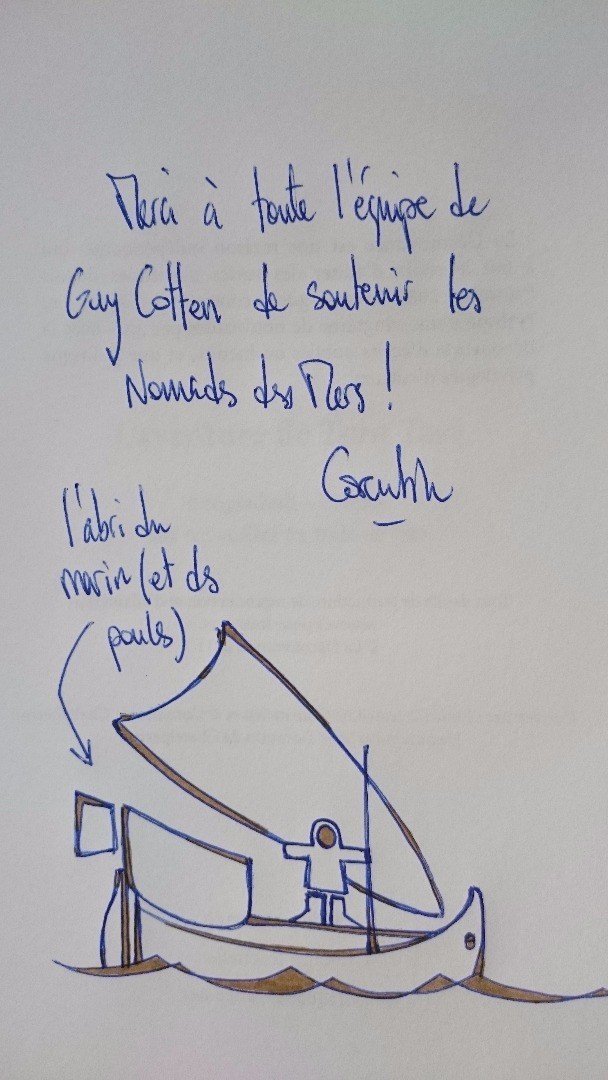 Merci à toute l'équipe de
Guy Cotten de soutenir les
Nomades des Mers !
l'abri du
marin (et des
poules)